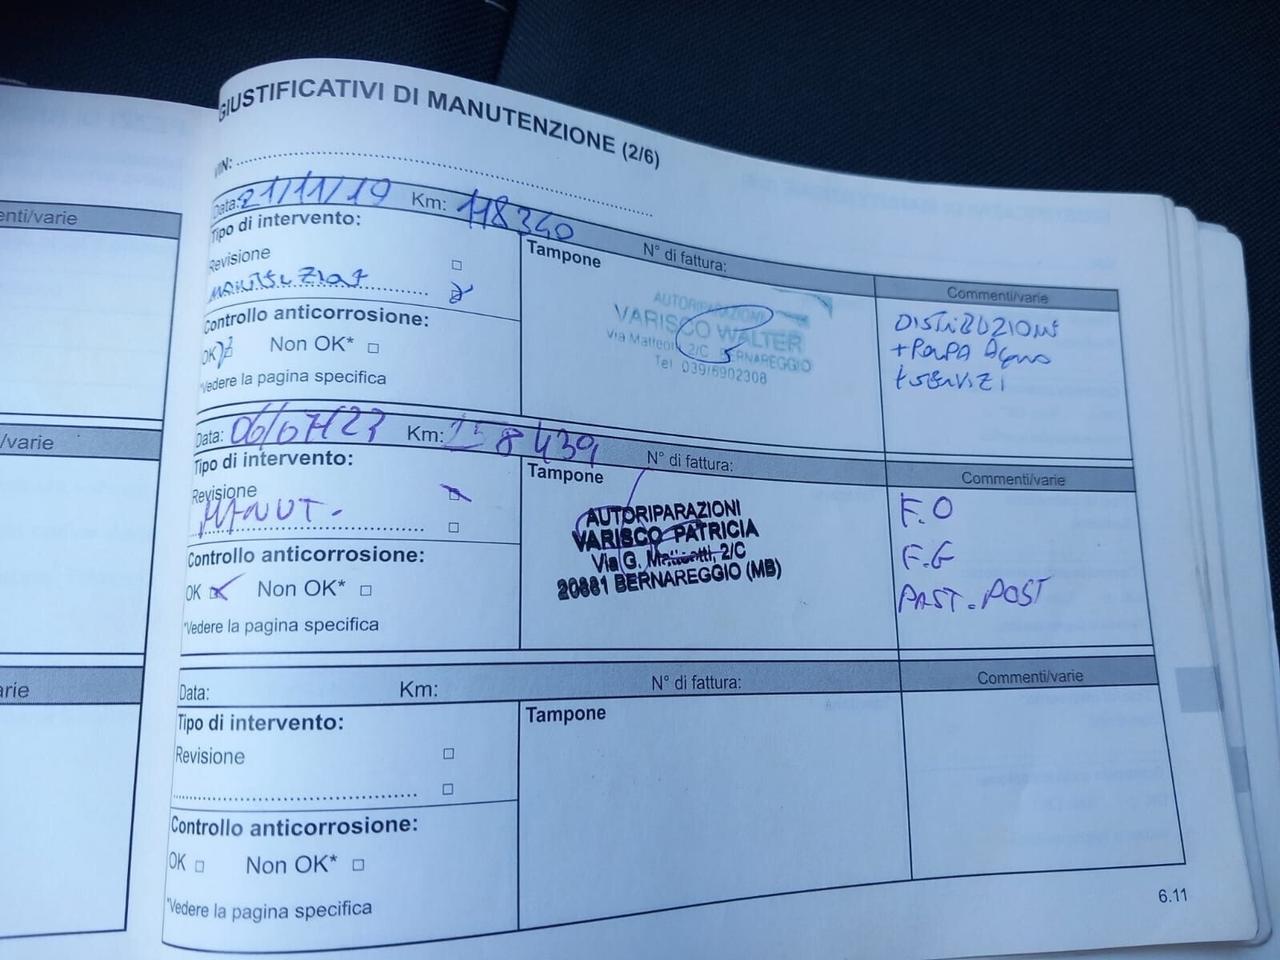 GIUSTIFICATIVI DI MANUTENZIONE (2/6)
VIN:
enti/varie
Data: 21/11/19 Km: 118340 N° di fattura:
Tipo di intervento:
Revisione
Tampone
Commenti/varie
AUTORIPARAZIONI
VARISCO WALTER
Via Matteotti, 2/C BERNAREGGIO
Tel. 039/6902308
DISTRIBUZIONE
+ POMPA Acqua
+ SERVIZI
Controllo anticorrosione:
OK Non OK*
*Vedere la pagina specifica
/varie
Data: 06/07/23 Km: 158439 N° di fattura:
Tipo di intervento:
Revisione
MANUT.
Tampone
Commenti/varie
AUTORIPARAZIONI
VARISCO PATRICIA
Via G. Matteotti, 2/C
20881 BERNAREGGIO (MB)
F.O
F.G
PAST. POST
Controllo anticorrosione:
OK Non OK*
*Vedere la pagina specifica
arie
Data: Km: N° di fattura:
Tipo di intervento:
Revisione
Tampone
Commenti/varie
Controllo anticorrosione:
OK Non OK*
*Vedere la pagina specifica
6.11